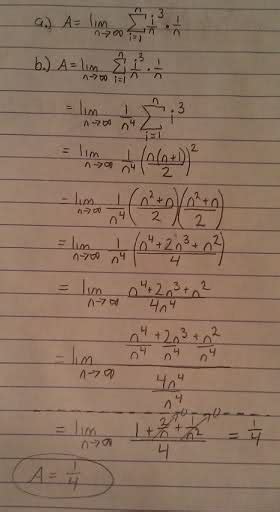 a.) A = lim n→∞ n Σ i=1 i³/n · 1/n
b.) A = lim n→∞ n Σ i=1 i³/n · 1/n
= lim n→∞ 1/n⁴ n Σ i=1 i³
= lim n→∞ 1/n⁴ (n(n+1)/2)²
= lim n→∞ 1/n⁴ (n²+n/2)(n²+n/2)
= lim n→∞ 1/n⁴ (n⁴+2n³+n²/4)
= lim n→∞ n⁴+2n³+n²/4n⁴
= lim n→∞ n⁴/n⁴ + 2n³/n⁴ + n²/n⁴ / 4n⁴/n⁴
= lim n→∞ 1 + 2/n→0 + 1/n²→0 / 4 = 1/4
A = 1/4